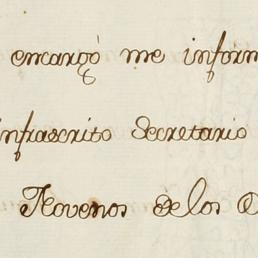 encargó me inform
infrascrito Secretario
Novenos de los